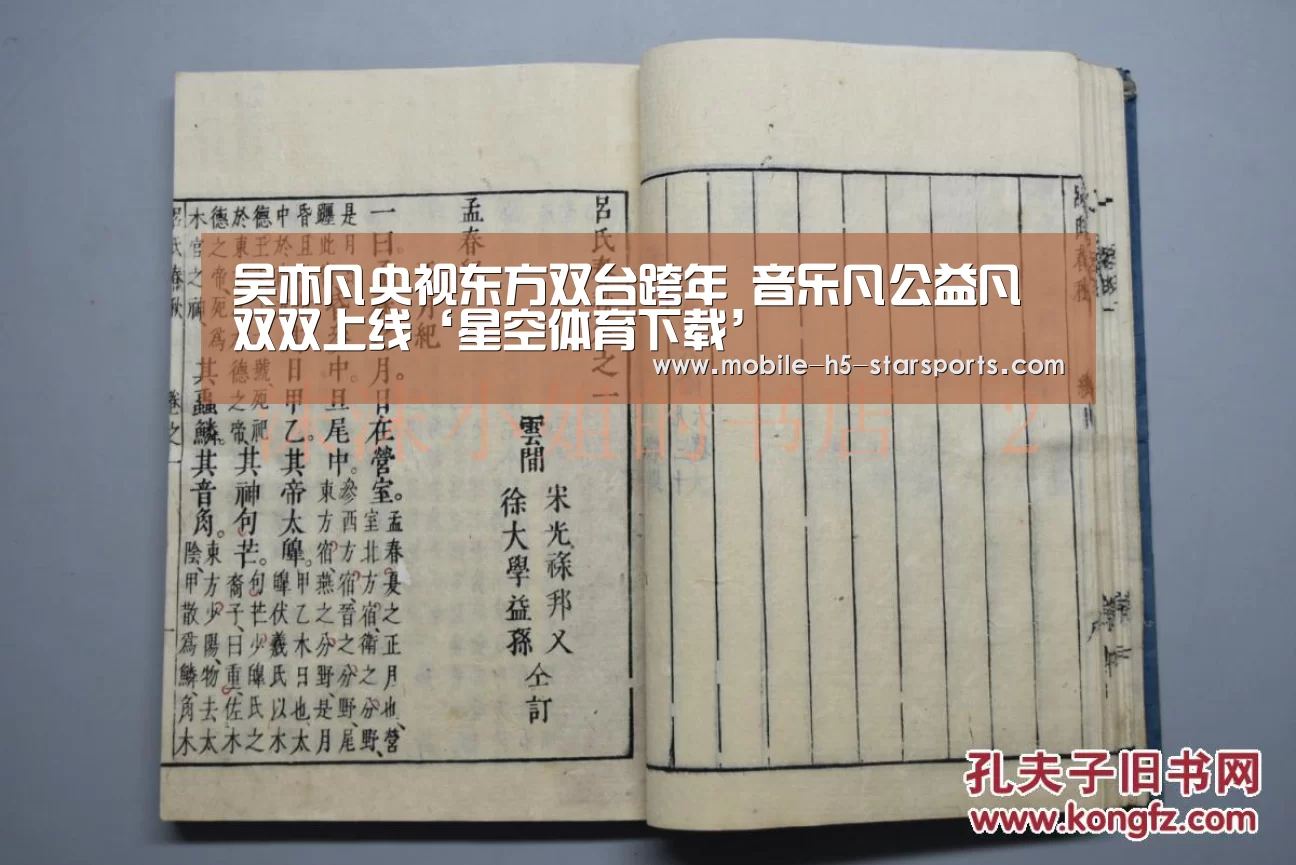 吴亦凡央视东方双台跨年 音乐凡公益凡
双双上线‘星空体育下载’
www.mobile-h5-starsports.com
沫沫小姐的书店 2
呂氏春
之一
雲間
宋光祿邦乂
徐大學益孫
仝訂
孟春
月紀
一曰
月。日在營室。
孟春夏之正月也、營
室北方宿、衛之分野、
是月
躔此
中旦尾中。
參西方宿、晉之分野、尾
東方宿、燕之分野、是月
昏旦
中於
日甲乙其帝太皞。
甲乙木日也、太
皞伏羲氏以木
德王
於東
號、死祀
德之帝、
其神句芒。
句芒少皞氏之
裔子、曰重、佐木
德之帝、死爲
木官之神、
其蟲鱗、其音角。
東方少陽、物去太
陰、甲散爲鱗、角木
呂氏春秋
卷之一
孔夫子旧书网
www.kongfz.com